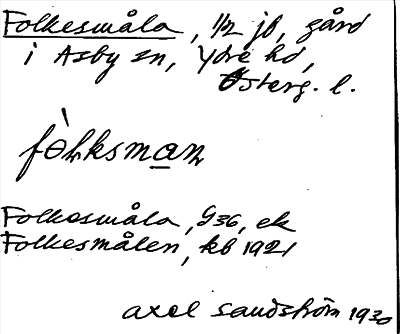 Folkesmåla, 1/2 jb, gård
i Asby sn, Ydre hd,
Österg. l.
Folkesmåla, G36, ek
Folkesmålen, kb 1921
Axel Sandström 1930